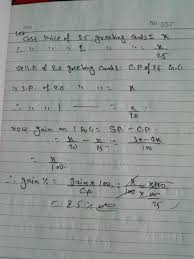 No. 057
Let
Cost Price of 25 greeting cards = x
1 = x/25
Sell.P of 20 greeting Cards = C.P of 25 G.C
S.P. of 20 = x
1 = x/20
now gain in 1 = S.P. - C.P.
= x/20 - x/25 = 5x-4x/100
= x/100
∴ gain % = gain x 100 / C.P.
= 25 %